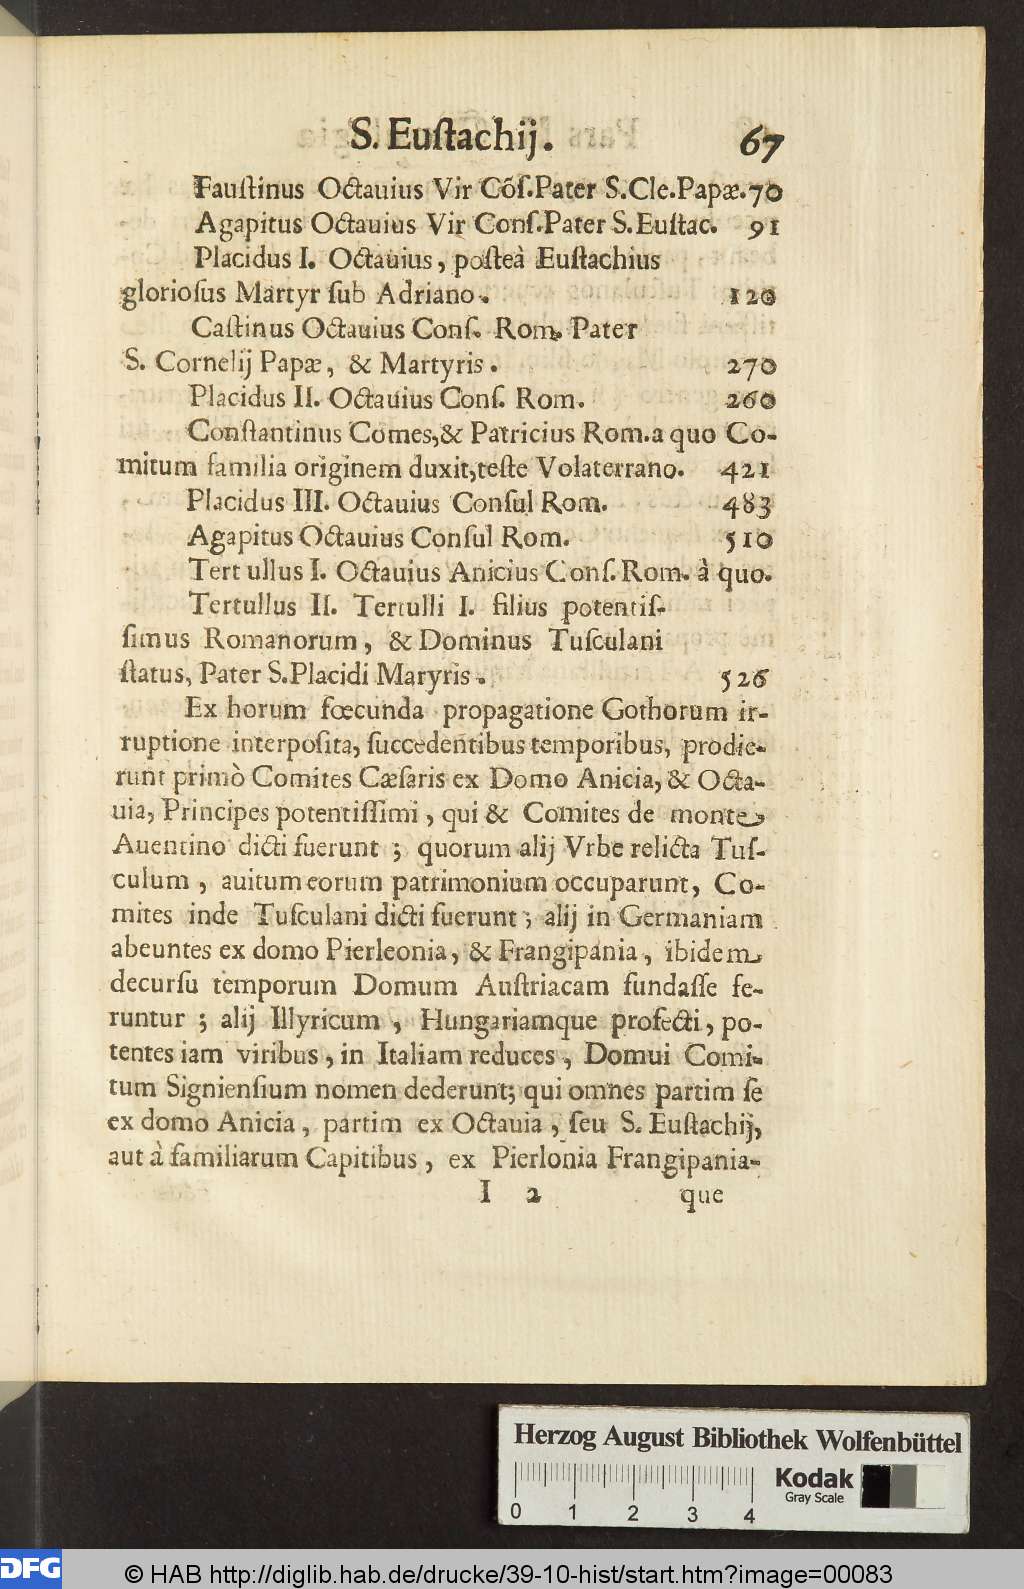 S. Euſtachij. 67
Fauſtinus Octauius Vir Cõſ.Pater S.Cle.Papæ.70
Agapitus Octauius Vir Conſ.Pater S.Euſtac. 91
Placidus I. Octauius, poſteà Euſtachius
glorioſus Martyr ſub Adriano. 120
Caſtinus Octauius Conſ. Rom. Pater
S. Cornelij Papæ, & Martyris. 270
Placidus II. Octauius Conſ. Rom. 260
Conſtantinus Comes,& Patricius Rom.a quo Co-
mitum familia originem duxit,teſte Volaterrano. 421
Placidus III. Octauius Conſul Rom. 483
Agapitus Octauius Conſul Rom. 510
Tert ullus I. Octauius Anicius Conſ. Rom. à quo.
Tertullus II. Tertulli I. filius potentiſ-
ſimus Romanorum, & Dominus Tuſculani
ſtatus, Pater S.Placidi Maryris. 526
Ex horum fœcunda propagatione Gothorum ir-
ruptione interpoſita, ſuccedentibus temporibus, prodie-
runt primò Comites Cæſaris ex Domo Anicia, & Octa-
uia, Principes potentiſſimi, qui & Comites de monte
Auentino dicti fuerunt; quorum alij Vrbe relicta Tuſ-
culum, auitum eorum patrimonium occuparunt, Co-
mites inde Tuſculani dicti fuerunt; alij in Germaniam
abeuntes ex domo Pierleonia, & Frangipania, ibidem
decurſu temporum Domum Auſtriacam fundaſſe fe-
runtur; alij Illyricum, Hungariamque profecti, po-
tentes iam viribus, in Italiam reduces, Domui Comi-
tum Signienſium nomen dederunt; qui omnes partim ſe
ex domo Anicia, partim ex Octauia, ſeu S. Euſtachij,
aut à familiarum Capitibus, ex Pierlonia Frangipania-
I 2 que
Herzog August Bibliothek Wolfenbüttel
0 1 2 3 4
Kodak
Gray Scale
DFG © HAB http://diglib.hab.de/drucke/39-10-hist/start.htm?image=00083